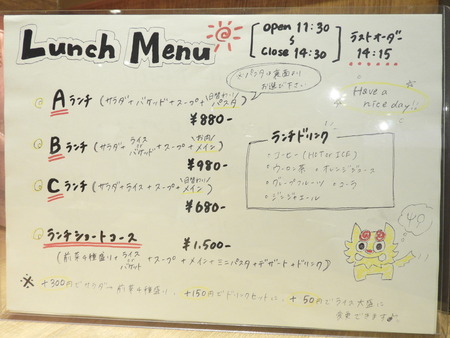 Lunch Menu
Open 11:30
〜
Close 14:30
ラストオーダー
14:15
※パスタは裏面より
お選び下さい
Have a
nice day!!
Aランチ(サラダ+バケット+スープ+日替わりパスタ)
¥880-
Bランチ(サラダ+ライス or バケット+スープ+お肉メイン)
¥980-
Cランチ(サラダ+ライス+スープ+日替わりメイン)
¥680-
ランチドリンク
・コーヒー(HOT or ICE)
・ウーロン茶 ・オレンジジュース
・グレープフルーツ ・コーラ
・ジンジャエール
ランチショートコース
¥1,500-
(前菜4種盛り+ライス or バケット+スープ+メイン+ミニパスタ+デザート+ドリンク)
※ +300円でサラダ→前菜4種盛り、+150円でドリンクセットに、+50円でライス大盛に
変更できます。